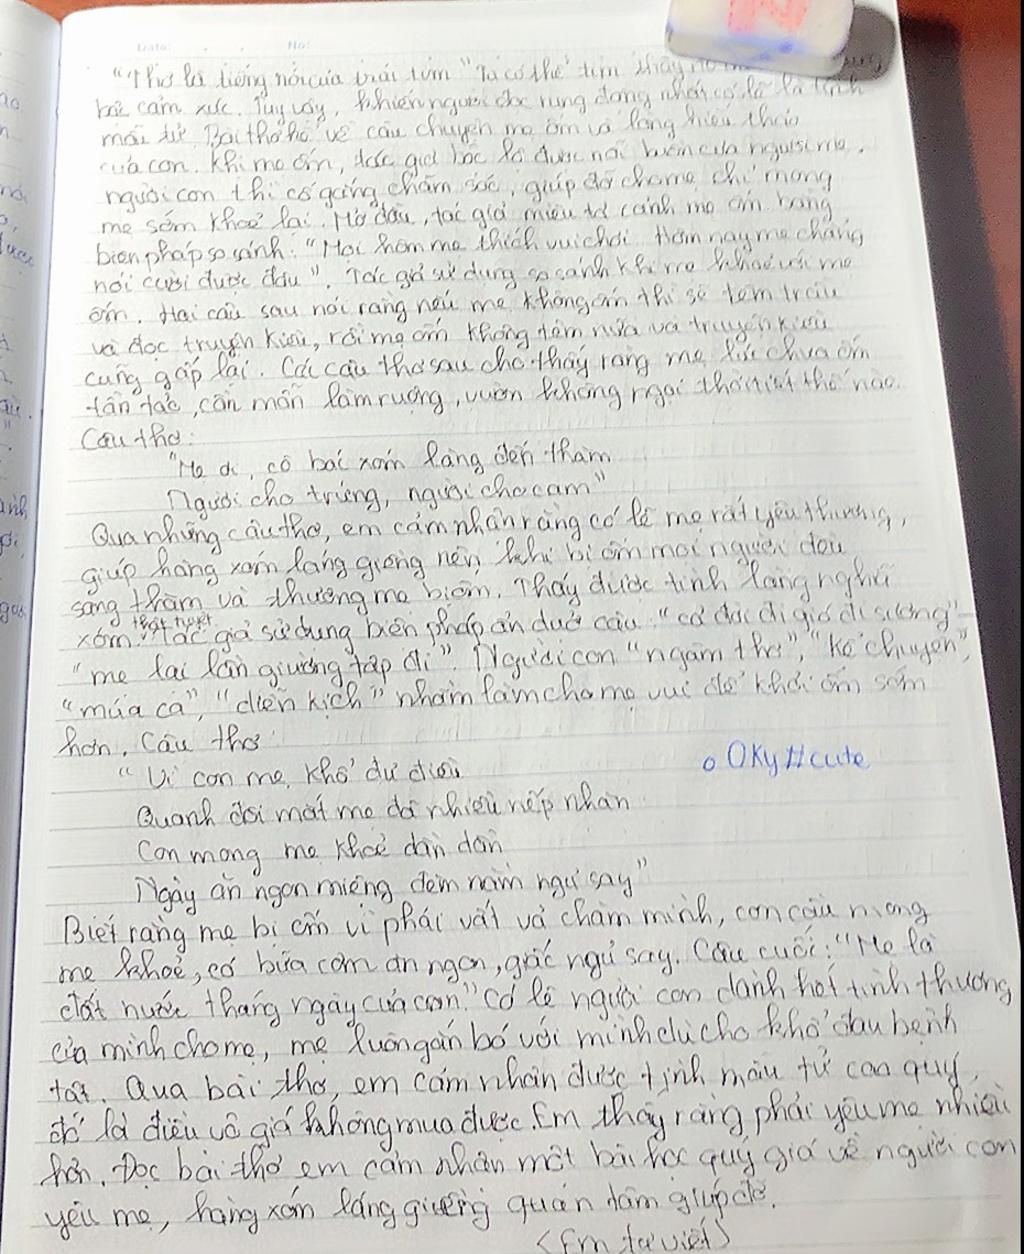 Date: No:
"Thơ là tiếng nói của trái tim" Ta có thể tìm thấy nó
bậc cảm xúc. Tuy vậy, khiến người đọc rung động nhất có lẽ là tình
mẫu tử. Bài thơ kể về câu chuyện mẹ ốm và lòng hiếu thảo
của con. Khi mẹ ốm, tác giả bộc lộ được nỗi buồn của người mẹ.
người con thì cố gắng chăm sóc, giúp đỡ cho mẹ chỉ mong
mẹ sớm khoẻ lại. Mở đầu, tác giả miêu tả cảnh mẹ ốm bằng
biện pháp so sánh: "Mọi hôm mẹ thích vui chơi Hôm nay mẹ chẳng
nói cười được đâu". Tác giả sử dụng so sánh khi mẹ khoẻ với mẹ
ốm. Hai câu sau nói rằng nếu mẹ không ốm thì sẽ têm trầu
và đọc truyện kiều, rồi mẹ ốm không têm nữa và truyện kiều
cũng gấp lại. Các câu thơ sau cho thấy rằng mẹ lúc chưa ốm
tần tảo, cần mẫn làm ruộng, vườn không ngại thời tiết thế nào.
Câu thơ:
"Mẹ ơi, cô bác xóm làng đến thăm
Người cho trứng, người cho cam"
Qua những câu thơ, em cảm nhận rằng có lẽ mẹ rất yêu thương,
giúp hàng xóm láng giềng nên khi bị ốm mọi người đều
sang thăm và thương mẹ bị ốm. Thấy được tình làng nghĩa
xóm thật tuyệt. Tác giả sử dụng biện pháp ẩn dụ ở câu "cả đời đi gió đi sương"
"mẹ lại lần giường tập đi". Người con "ngâm thơ", "kể chuyện",
"múa ca", "diễn kịch" nhằm làm cho mẹ vui để khỏi ốm sớm
hơn. Câu thơ
"Vì con mẹ khổ đủ điều
o OKy#cute
Quanh đôi mắt mẹ đã nhiều nếp nhăn
Con mong mẹ khoẻ dần dần
Ngày ăn ngon miệng đêm nằm ngủ say"
Biết rằng mẹ bị ốm vì phải vất vả chăm mình, con cầu mong
mẹ khoẻ, có bữa cơm ăn ngon, giấc ngủ say. Câu cuối: "Mẹ là
đất nước tháng ngày của con." Có lẽ người con dành hết tình thương
của mình cho mẹ, mẹ luôn gắn bó với mình dù cho khổ đau bệnh
tật. Qua bài thơ, em cảm nhận được tình mẫu tử cao quý,
đó là điều vô giá không mua được. Em thấy rằng phải yêu mẹ nhiều
hơn. Đọc bài thơ em cảm nhận một bài học quý giá về người con
yêu mẹ, hàng xóm láng giềng quan tâm giúp đỡ.
(Em tự viết)